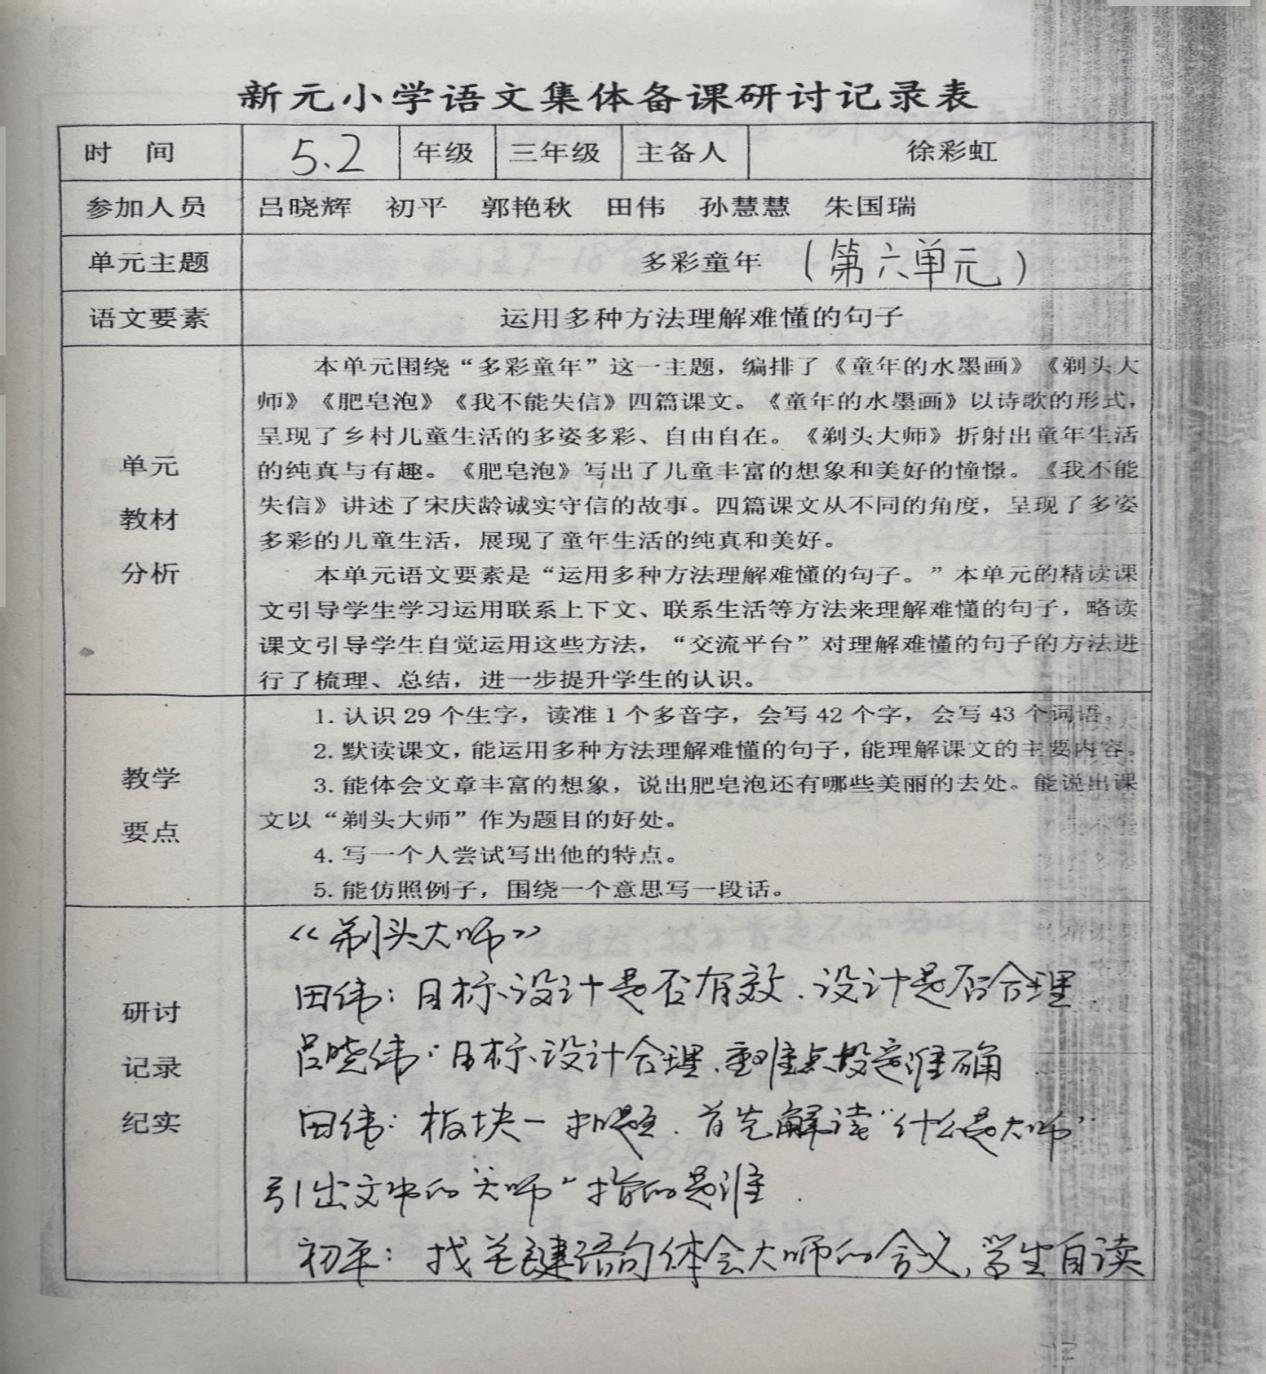 新元小学语文集体备课研讨记录表
时 间 5.2 年级 三年级 主备人 徐彩虹
参加人员 吕晓辉 初平 郭艳秋 田伟 孙慧慧 朱国瑞
单元主题 多彩童年 (第六单元)
语文要素 运用多种方法理解难懂的句子
单元
教材
分析
本单元围绕“多彩童年”这一主题，编排了《童年的水墨画》《剃头大
师》《肥皂泡》《我不能失信》四篇课文。《童年的水墨画》以诗歌的形式，
呈现了乡村儿童生活的多姿多彩、自由自在。《剃头大师》折射出童年生活
的纯真与有趣。《肥皂泡》写出了儿童丰富的想象和美好的憧憬。《我不能
失信》讲述了宋庆龄诚实守信的故事。四篇课文从不同的角度，呈现了多姿
多彩的儿童生活，展现了童年生活的纯真和美好。
本单元语文要素是“运用多种方法理解难懂的句子。”本单元的精读课
文引导学生学习运用联系上下文、联系生活等方法来理解难懂的句子，略读
课文引导学生自觉运用这些方法，“交流平台”对理解难懂的句子的方法进
行了梳理、总结，进一步提升学生的认识。
教学
要点
1. 认识 29 个生字，读准 1 个多音字，会写 42 个字，会写 43 个词语。
2. 默读课文，能运用多种方法理解难懂的句子，能理解课文的主要内容。
3. 能体会文章丰富的想象，说出肥皂泡还有哪些美丽的去处。能说出课
文以“剃头大师”作为题目的好处。
4. 写一个人尝试写出他的特点。
5. 能仿照例子，围绕一个意思写一段话。
研讨
记录
纪实
《剃头大师》
田伟：目标设计是否有效、设计是否合理
吕晓伟：目标设计合理、重难点设定准确
田伟：板块一 扣题、首先解读“什么是大师”
引出文中的“大师”指的是谁.
初平：找关键语句体会大师的含义，学生自读